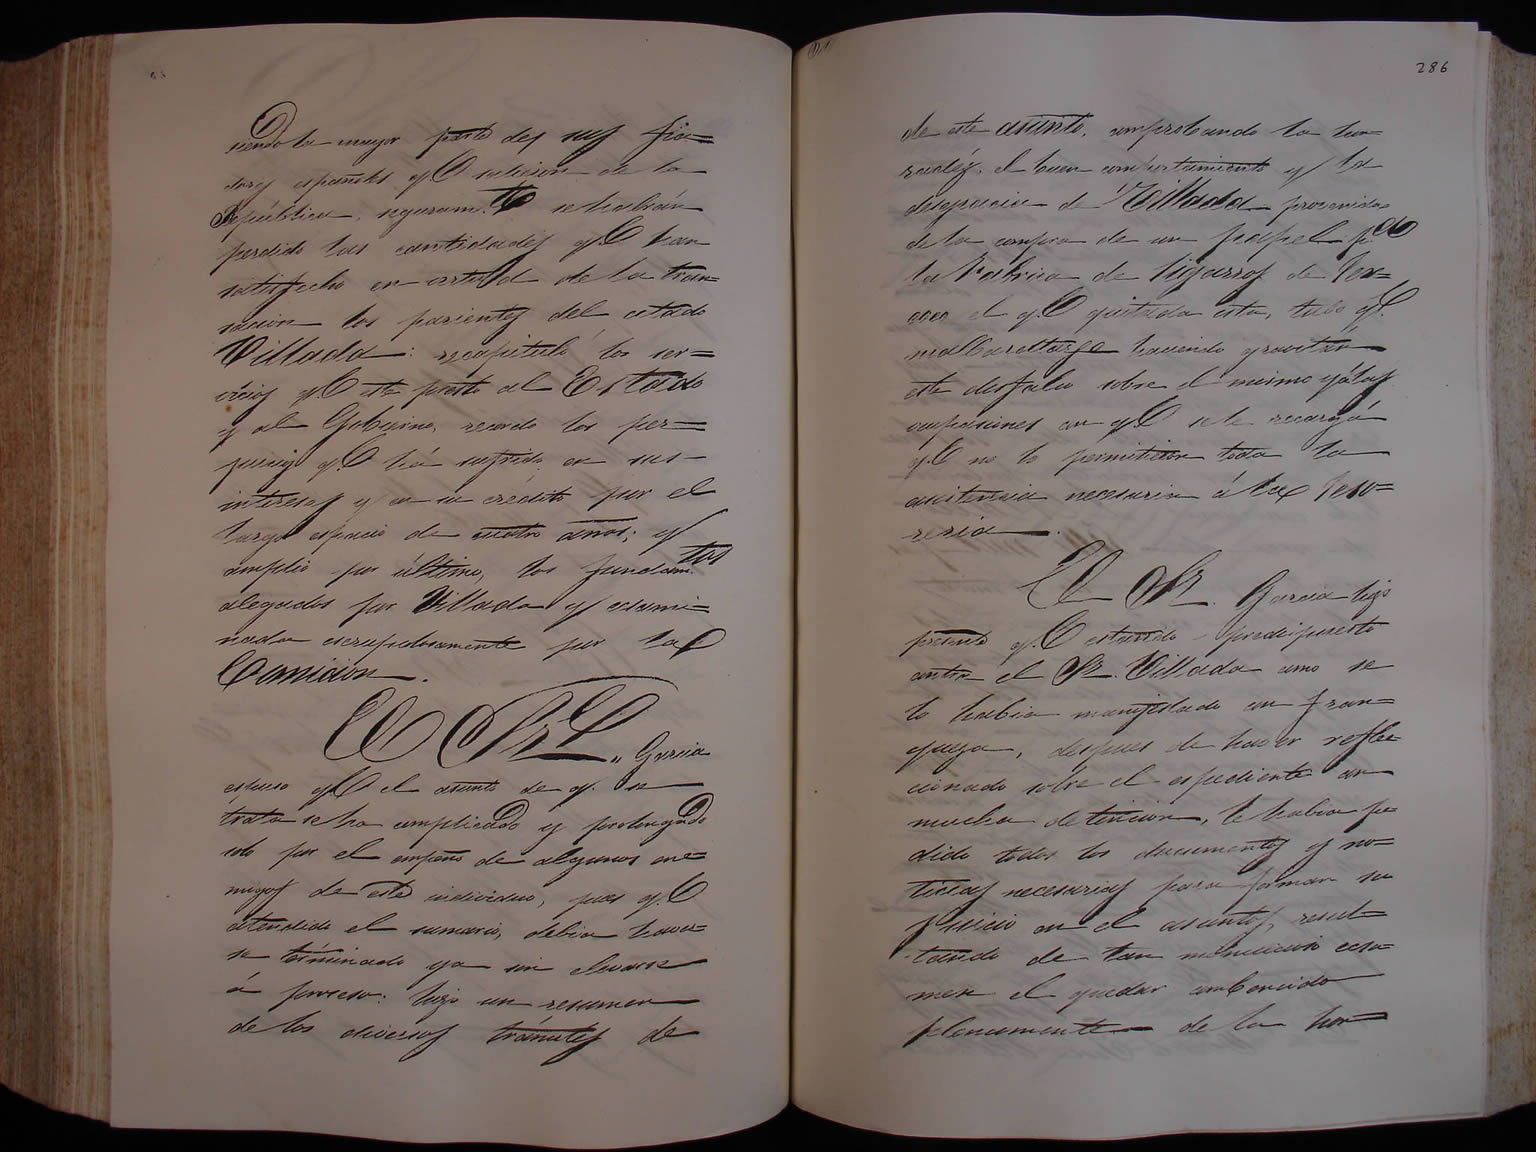 siendo la mayor parte de sus fia=
dores españoles y q.e salieron de la
República, seguram.te se habrán
perdido las cantidades q.e han
satisfecho en virtud de la tran=
sacion los parientes del citado
Villada: recapituló los ser=
vicios q.e este prestó al Estado
y al Gobierno, recordó los per=
juicios q.e há sufrido en sus
intereses y en su crédito por el
largo espacio de cuatro años; y
amplió por último, los fundam.tos
alegados por Villada y exami=
nada escrupulosamente por la
Comicion.
El Sr. Garcia
espuso q.e el asunto de q. se
trata se ha complicado y prolongado
solo por el empeño de algunos ene=
migos de este individuo, pues q.e
atendido el sumario, debia haver=
se términado ya sin elevarse
á proceso: hizo un resumen
de los diversos trámites de
286
de este asunto, comprobando la hon=
radéz, el buen comportamiento y la
desgracia de Villada provenida
de la compra de un papel p.a
la Fabrica de Cigarros de Tex=
coco el q.e quitada esta, tubo q.e
malbaratarse haciendo gravitar
este desfalco sobre el mismo y á las
compasiones con q.e se le recargó
q.e no le permitieron toda la
asistencia necesaria á la Teso=
reria.
El Sr. Garcia hizo
presente q.e estando predispuesto
contra el Sr. Villada como se
lo habia manifestado con fran=
queza, despues de haver refle=
ccionado sobre el espediente con
mucha detencion, le habia pe=
dido todos los documentos y no=
ticias necesarias para formar su
juicio en el asunto, resul=
tando de tan minucioso ecsa=
men el quedar convencido
plenamente de la hon=